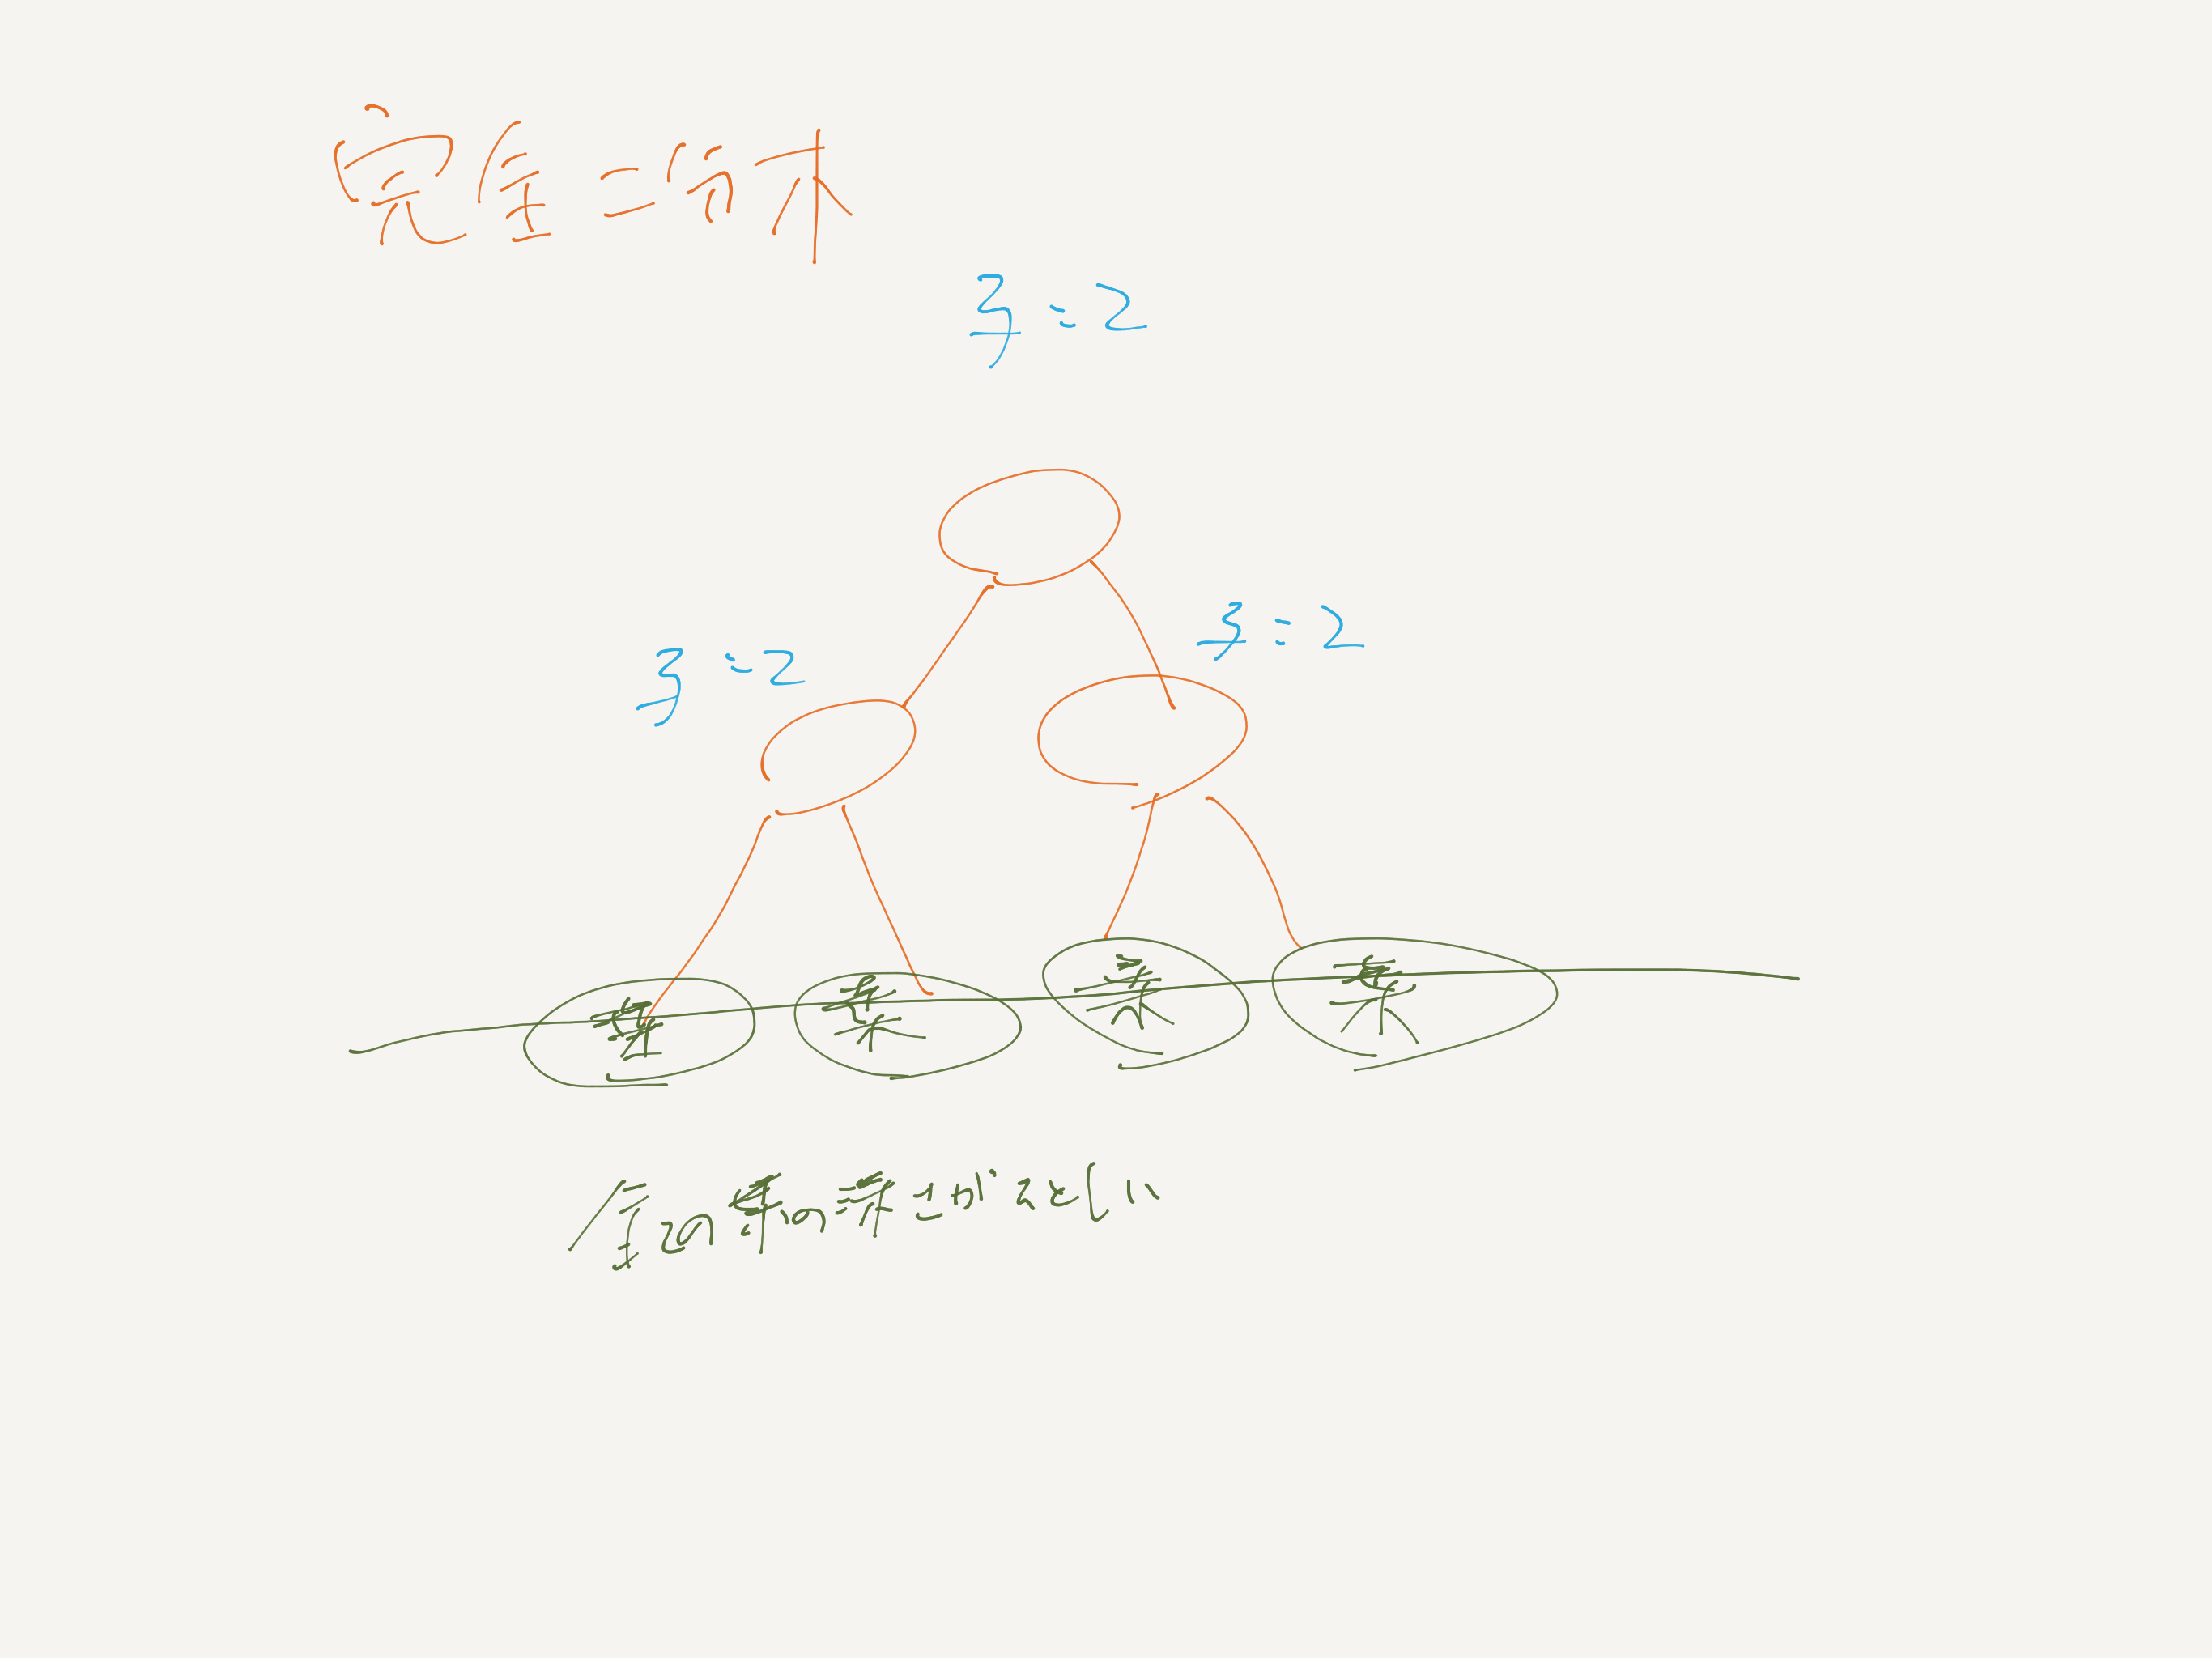 完全二分木
子:2
子:2
子:2
葉 葉 葉 葉
全ての葉の深さが等しい